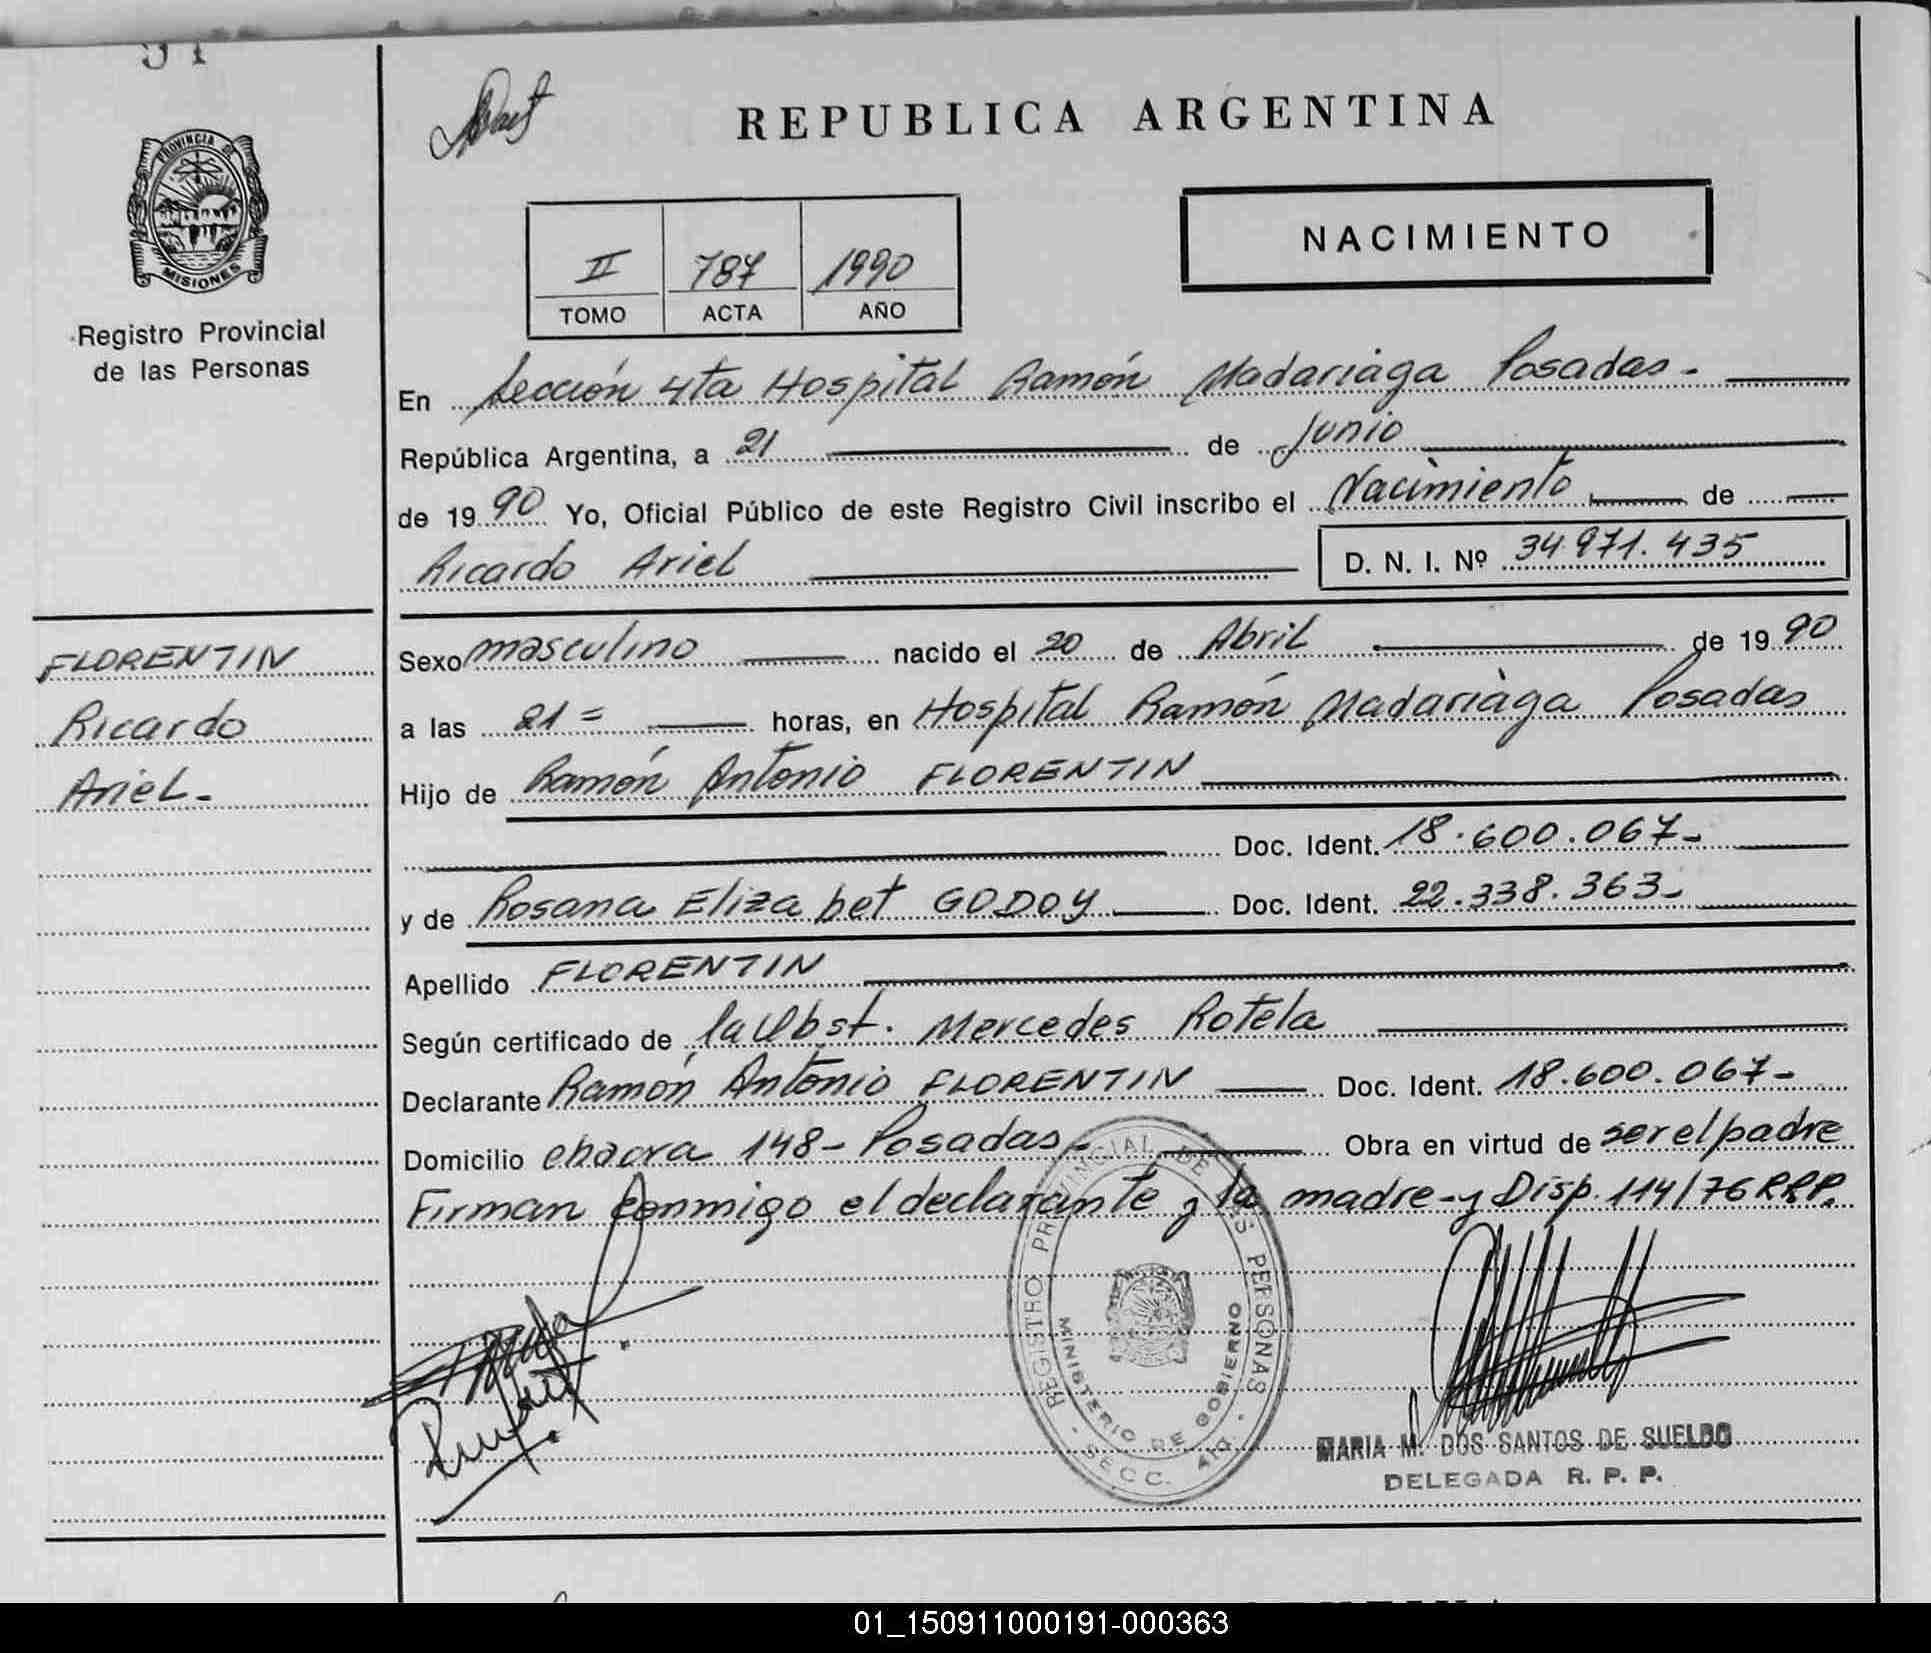 REPUBLICA ARGENTINA
PROVINCIA DE
MISIONES
Registro Provincial
de las Personas
NACIMIENTO
II 787 1990
TOMO ACTA AÑO
En Sección 4ta Hospital Ramón Madariaga Posadas.
República Argentina, a 21 de Junio
de 1990 Yo, Oficial Público de este Registro Civil inscribo el Nacimiento de
Ricardo Ariel D. N. I. Nº 34.971.435
FLORENTIN
Ricardo
Ariel.
Sexo masculino nacido el 20 de Abril de 1990
a las 21= horas, en Hospital Ramón Madariaga Posadas
Hijo de Ramón Antonio FLORENTIN
Doc. Ident. 18.600.067-
y de Rosana Elizabet GODOY Doc. Ident. 22.338.363-
Apellido FLORENTIN
Según certificado de la Obst. Mercedes Rotela
Declarante Ramón Antonio FLORENTIN Doc. Ident. 18.600.067-
Domicilio chacra 148- Posadas- Obra en virtud de ser el padre
Firman conmigo el declarante y la madre-y Disp. 114/76 RRP.
REGISTRO PROVINCIAL DE LAS PERSONAS
MINISTERIO DE GOBIERNO
- SECC. 4ta. -
MARIA M. DOS SANTOS DE SUELDO
DELEGADA R. P. P.
01_150911000191-000363